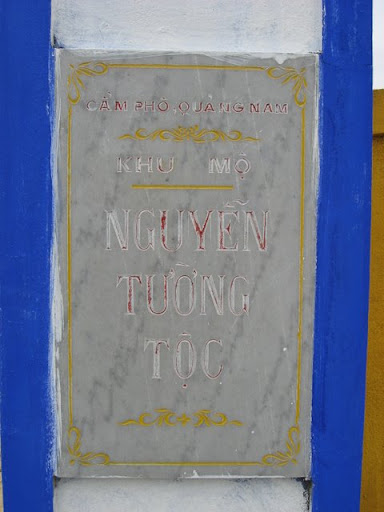 CẨM PHÔ, QUẢNG NAM
KHU MỘ
NGUYỄN
TƯỜNG
TỘC